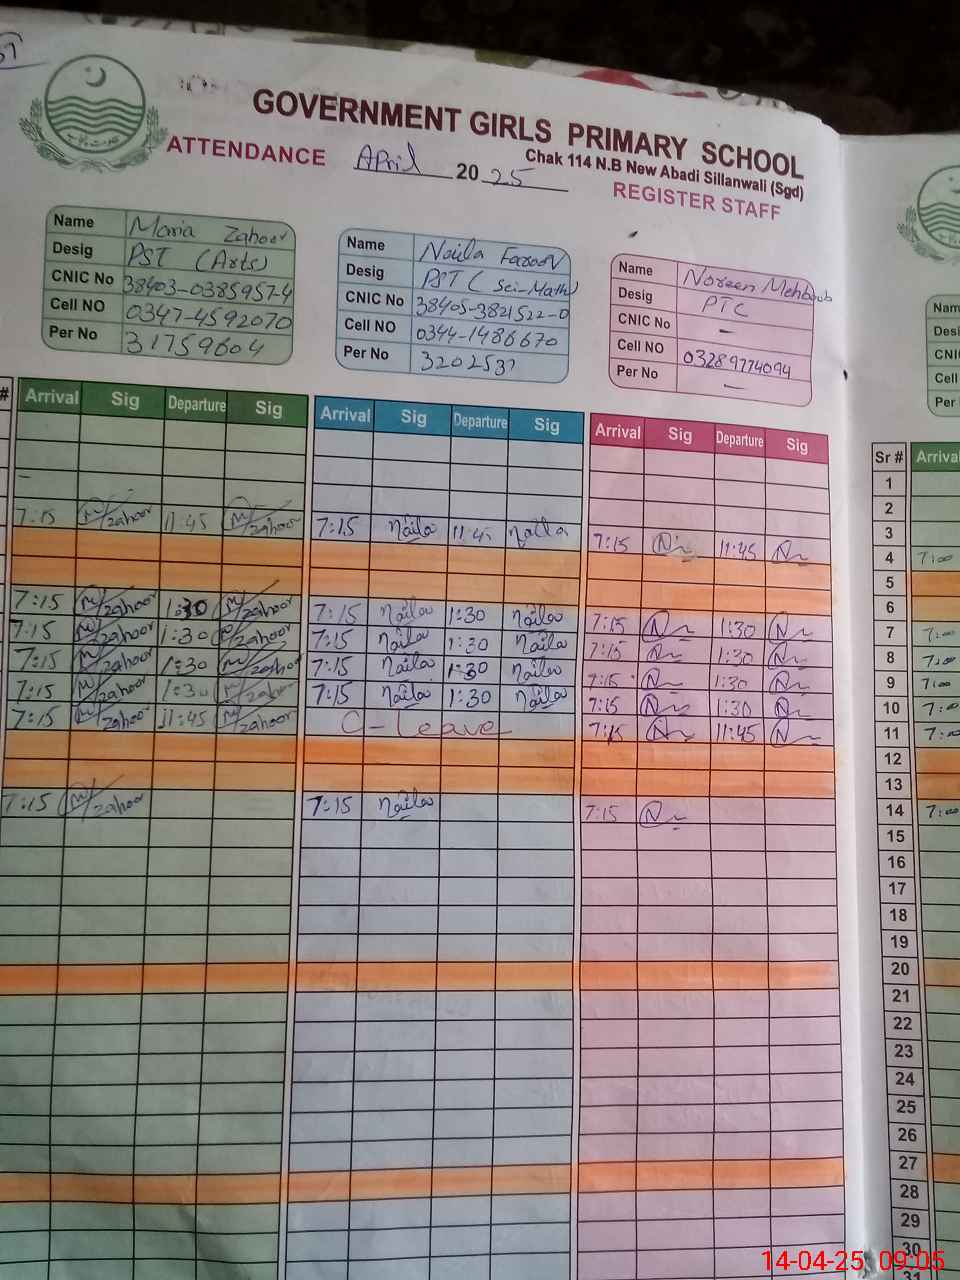 GOVERNMENT GIRLS PRIMARY SCHOOL
Chak 114 N.B New Abadi Sillanwali (Sgd)
ATTENDANCE April 2025 REGISTER STAFF
Name Maria Zahoor
Desig PST (Arts)
CNIC No 38403-0385957-4
Cell NO 0347-4592070
Per No 31759604
Name Naila Farooq
Desig PST ( Sci-Math)
CNIC No 38405-3821522-0
Cell NO 0344-1486670
Per No 3202537
Name Noreen Mehboob
Desig PTC
CNIC No -
Cell NO 03289774094
Per No -
# Arrival Sig Departure Sig Arrival Sig Departure Sig Arrival Sig Departure Sig
7:15 M/zahoor 11:45 M/zahoor 7:15 naila 11:45 naila 7:15 N 11:45 N
7:15 M/zahoor 1:30 M/zahoor 7:15 naila 1:30 naila 7:15 N 1:30 N
7:15 M/zahoor 1:30 M/zahoor 7:15 naila 1:30 naila 7:15 N 1:30 N
7:15 M/zahoor 1:30 M/zahoor 7:15 naila 1:30 naila 7:15 N 1:30 N
7:15 M/zahoor 1:30 M/zahoor 7:15 naila 1:30 naila 7:15 N 1:30 N
7:15 M/zahoor 11:45 M/zahoor C-Leave 7:15 N 11:45 N
7:15 M/zahoor 7:15 naila 7:15 N
Nam
Desi
CNI
Cell
Per
Sr # Arrival
1
2
3
4 7:00
5
6
7 7:00
8 7:00
9 7:00
10 7:00
11 7:00
12
13
14 7:00
15
16
17
18
19
20
21
22
23
24
25
26
27
28
29
30
31
14-04-25 09:05